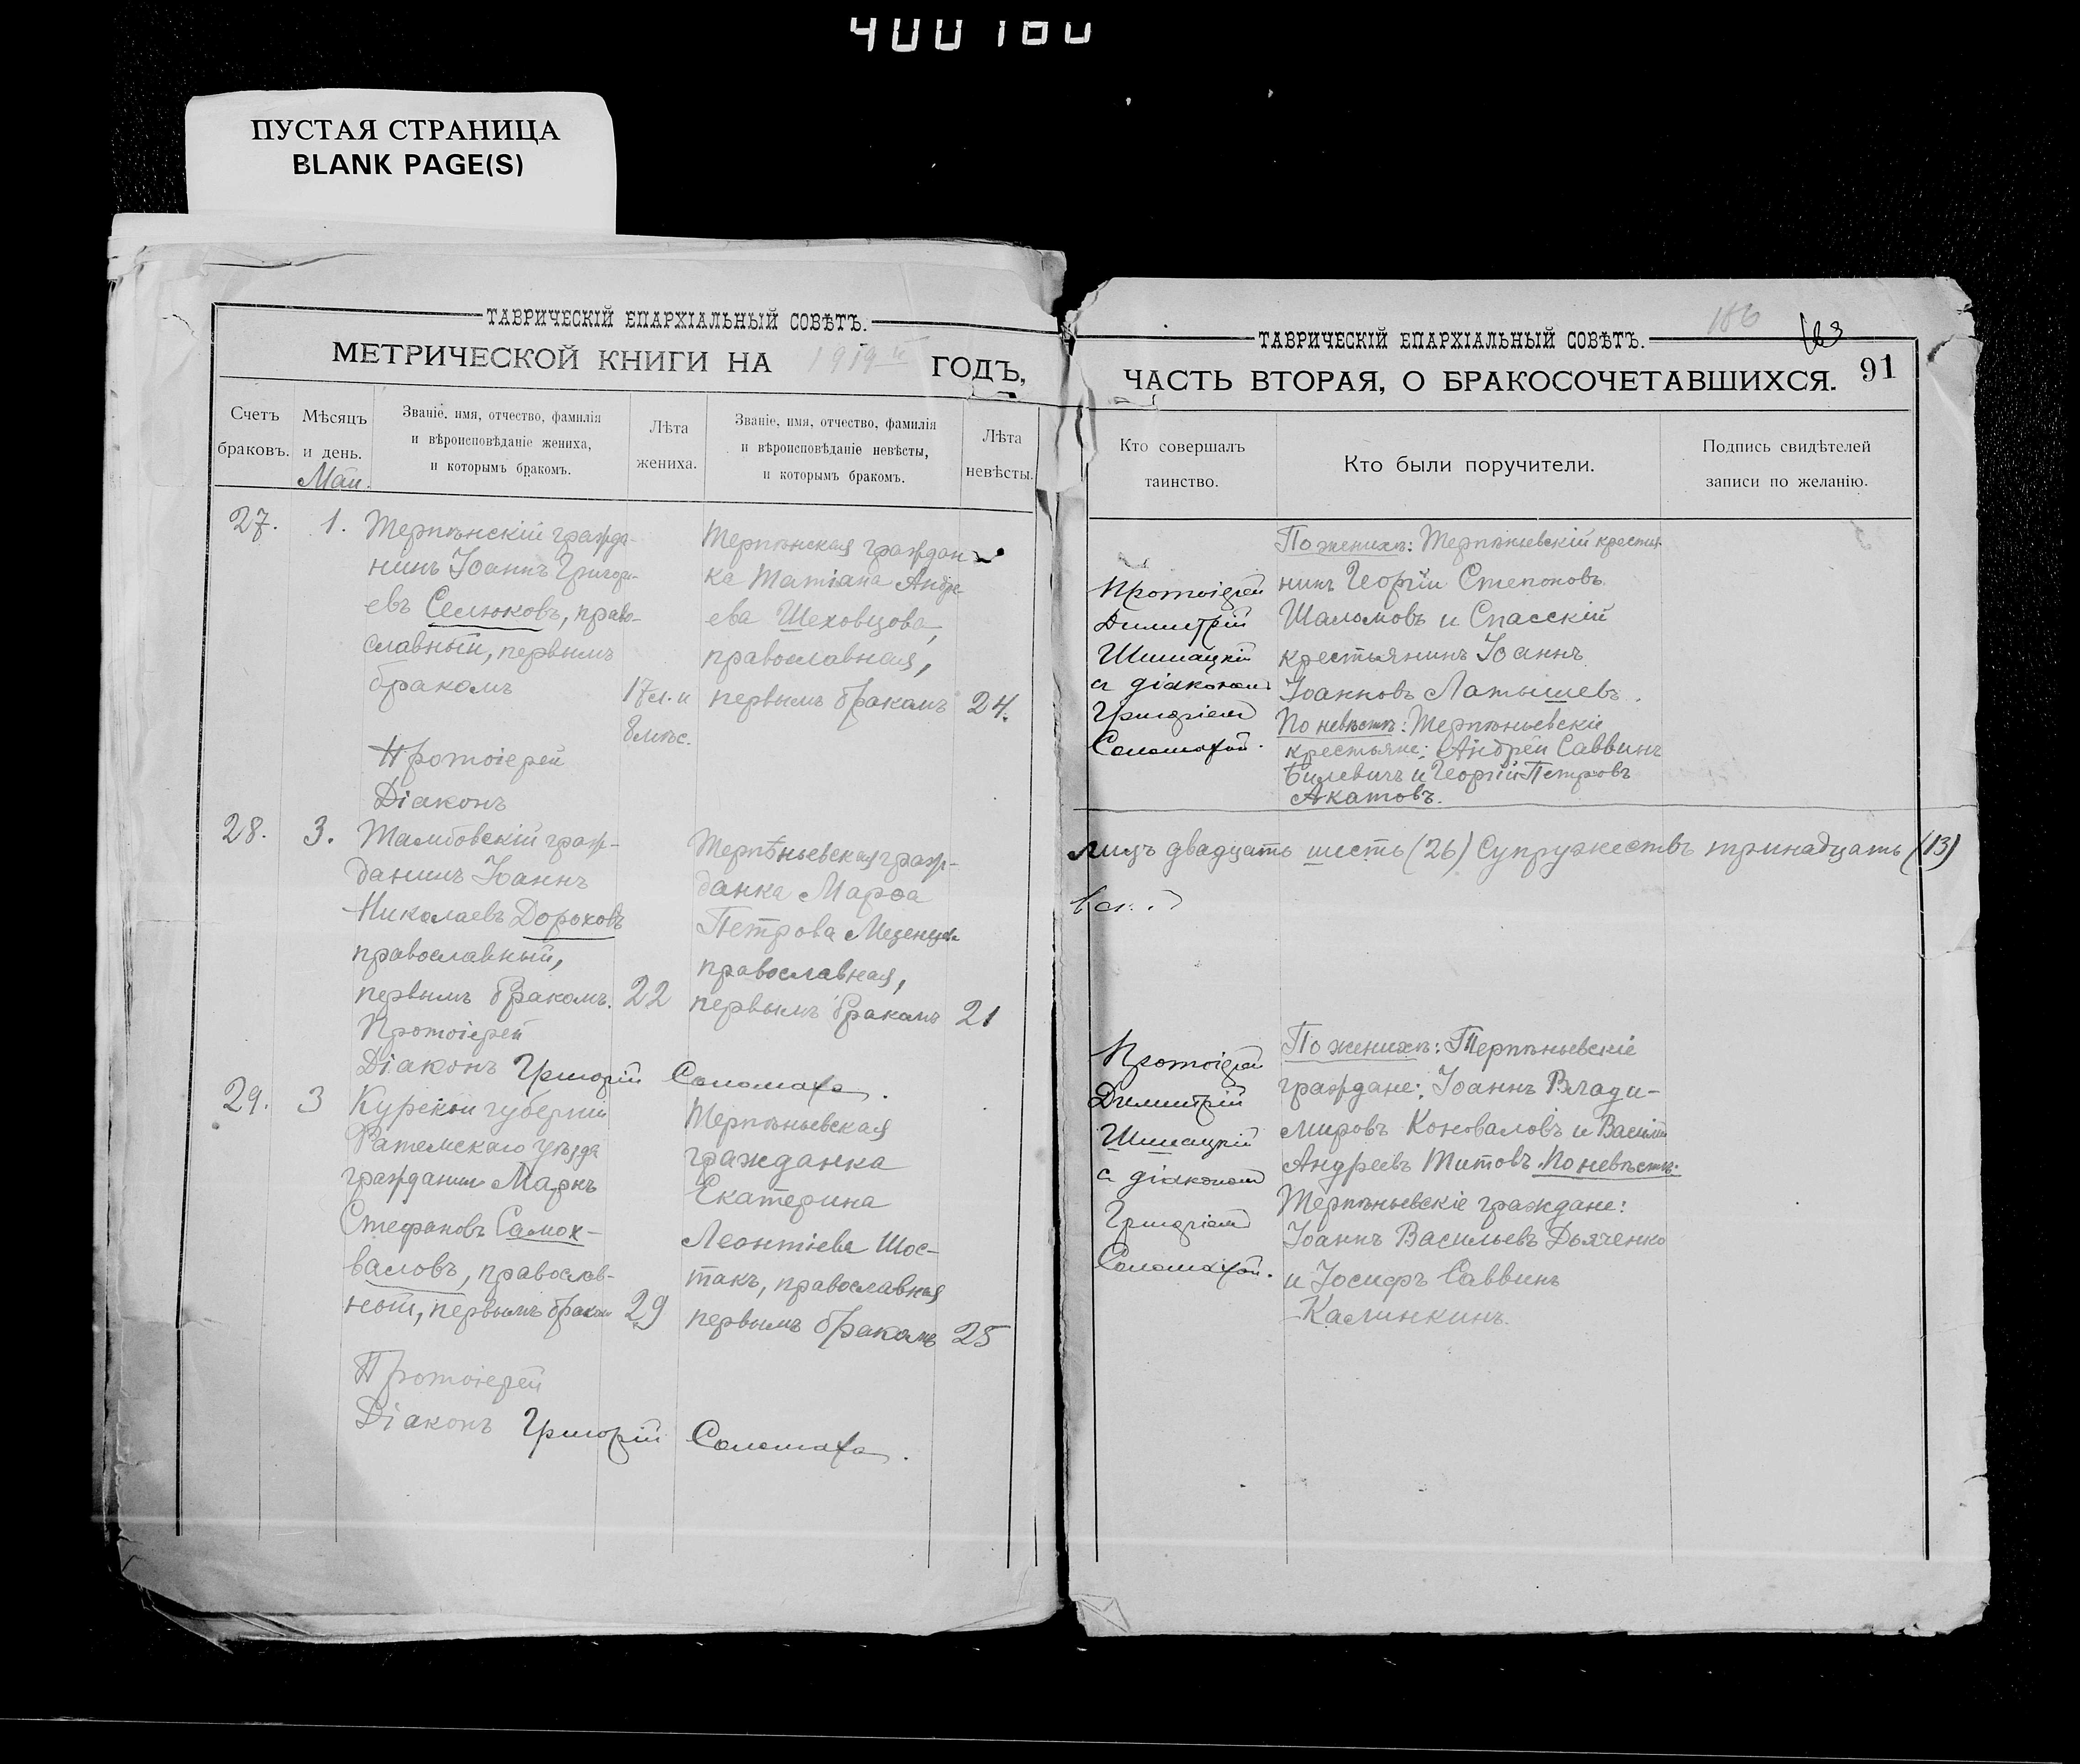 400180
ПУСТАЯ СТРАНИЦА
BLANK PAGE(S)
ТАВРИЧЕСКІЙ ЕПАРХІАЛЬНЫЙ СОВѢТЪ.
МЕТРИЧЕСКОЙ КНИГИ НА 1919 й ГОДЪ,
Счетъ
браковъ.
Мѣсяцъ
и день.
Званіе, имя, отчество, фамилія
и вѣроисповѣданіе жениха,
и которымъ бракомъ.
Лѣта
жениха.
Званіе, имя, отчество, фамилія
и вѣроисповѣданіе невѣсты,
и которымъ бракомъ.
Лѣта
невѣсты.
Маи.
27.
1.
Терпѣнскій гражда-
нинъ Іоаннъ Григорі-
евъ Селюковъ, право-
славный, первымъ
бракомъ
17 л. и
8 мѣс.
Терпѣнская граждан
ка Татіана Андре
ева Шеховцова,
православная,
первымъ бракомъ
24.
Протоіерей
Діаконъ
28.
3.
Тамбовскій граж-
данинъ Іоаннъ
Николаевъ Дороховъ
православный,
первымъ бракомъ.
22
Терпѣньевская граж-
данка Марѳа
Петрова
православная,
первымъ бракомъ
21
Протоіерей
Діаконъ Григорій Соломаха.
29.
3
Курской губерніи
уѣзда
гражданинъ Маркъ
Стефановъ Самох-
валовъ, православ-
ной, первымъ браком
29
Терпѣньевская
гражданка
Екатерина
Леонтіева Шос-
такъ, православная
первымъ бракомъ
25
Протоіерей
Діаконъ Григорій Соломаха.
186
183
ТАВРИЧЕСКІЙ ЕПАРХІАЛЬНЫЙ СОВѢТЪ.
ЧАСТЬ ВТОРАЯ, О БРАКОСОЧЕТАВШИХСЯ.
91
Кто совершалъ
таинство.
Кто были поручители.
Подпись свидѣтелей
записи по желанію.
Протоіерей
Димитрій
Шишацкій
съ діакономъ
Григоріемъ
Соломахой.
По женихѣ: Терпѣньевскій крестья
нинъ Георгій Степановъ
Шаломовъ и Спасскій
крестьянинъ Іоаннъ
Іоанновъ Латышевъ.
По невѣстѣ: Терпѣньевскіе
крестьяне: Андрей Саввинъ
Билевичъ и Георгій Петровъ
Акатовъ.
лицъ двадцать шесть (26) Супружествъ тринадцать (13)
Протоіерей
Димитрій
Шишацкій
съ діакономъ
Григоріемъ
Соломахой.
По женихѣ: Терпѣньевскіе
граждане: Іоаннъ Влади-
мировъ Коноваловъ и Василій
Андреевъ Титовъ. По невѣстѣ:
Терпѣньевскіе граждане:
Іоаннъ Васильевъ Дьяченко
и Іосифъ Саввинъ
Калинкинъ.